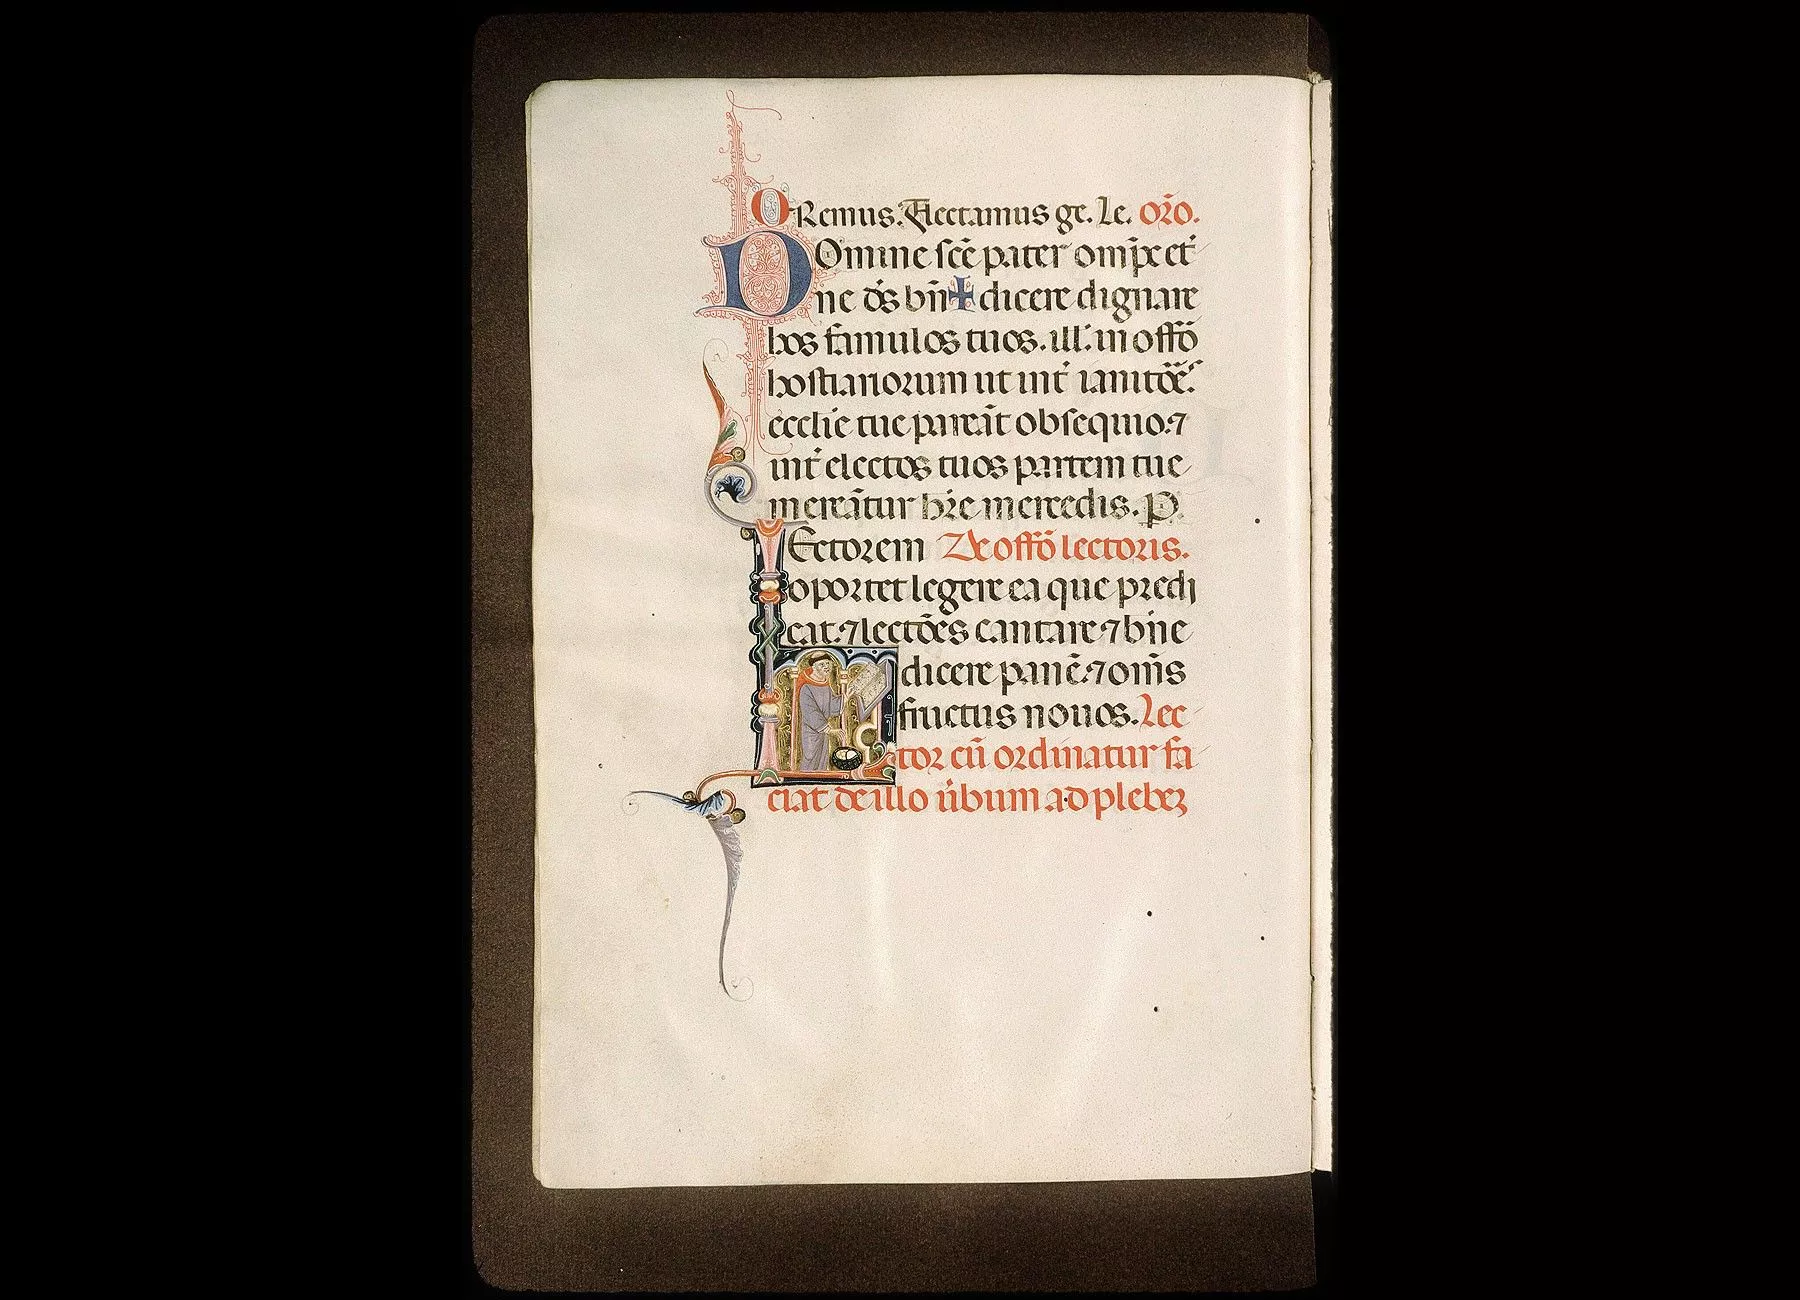 ORemus. Flectamus ge. Le. oro̅.
DOmine sc̅e pater omp̅s et
ne ds̅ bn̅✠dicere dignare
hos famulos tuos. ill. in offo̅
hostiariorum ut int̅ ianito̅e̅s
eccli̅e tue parea̅t obsequio. ⁊
int̅ electos tuos partem tue
merea̅tur hr̅e mercedis. P.
LEctorem De offo̅ lectoris.
oportet legere ea que predi
cat. ⁊ lecto̅es cantare ⁊ bn̅e
dicere pane̅. ⁊ om̅s
fructus nouos. Lec
tor cu̅ ordinatur fa
ciat de illo u̅bum ad plebeꝫ